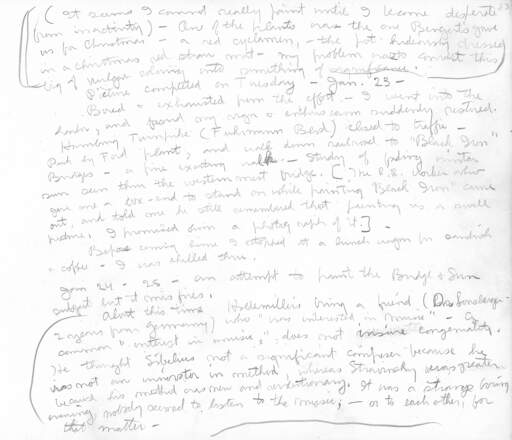 (It seems I cannot really paint until I become desperate
from inactivity) - One of the plants was the one Bergers gave
us for Christmas - a red cyclamen, - the pot hideously dressed
in a christmas red straw mat - my problem was to convert this
bit of vulgar coloring into something of significance.
Picture completed on Tuesday - Jan. 23 -
Bored & exhausted from the effort - I went into the
and found my vigor & enthusiasm suddenly restored.
Hamburg Turnpike (Fuhrmann Blvd) closed to traffic -
Park by Ford plant, and walk down railroad to "Black Iron"
Bridge - a fine exciting walk - Study of fading winter
sun seen thru the westernmost bridge. [The R.R. worker who
gave me a tie-end to stand on while painting "Black Iron" came
out, and told me he still remembered that painting as a small
picture. I promised him a photograph of it.] -
Before coming home I stopped at a lunch wagon for sandwich
& coffee - I was chilled thru.
Jan 24 - 25 - an attempt to paint the Bridge & Sun
subject but it misfires.
About this time bring a friend, (
2 years from Germany) who "was interested in music" - a
common "interest in music," does not insure congeniality.
He thought Sibelius not a significant composer because he
was not an innovator in method, whereas Stravinsky was greater
because his method was new and revolutionary. It was a strange boring
evening, nobody seemed to listen to the music; - or to each other, for
that matter -